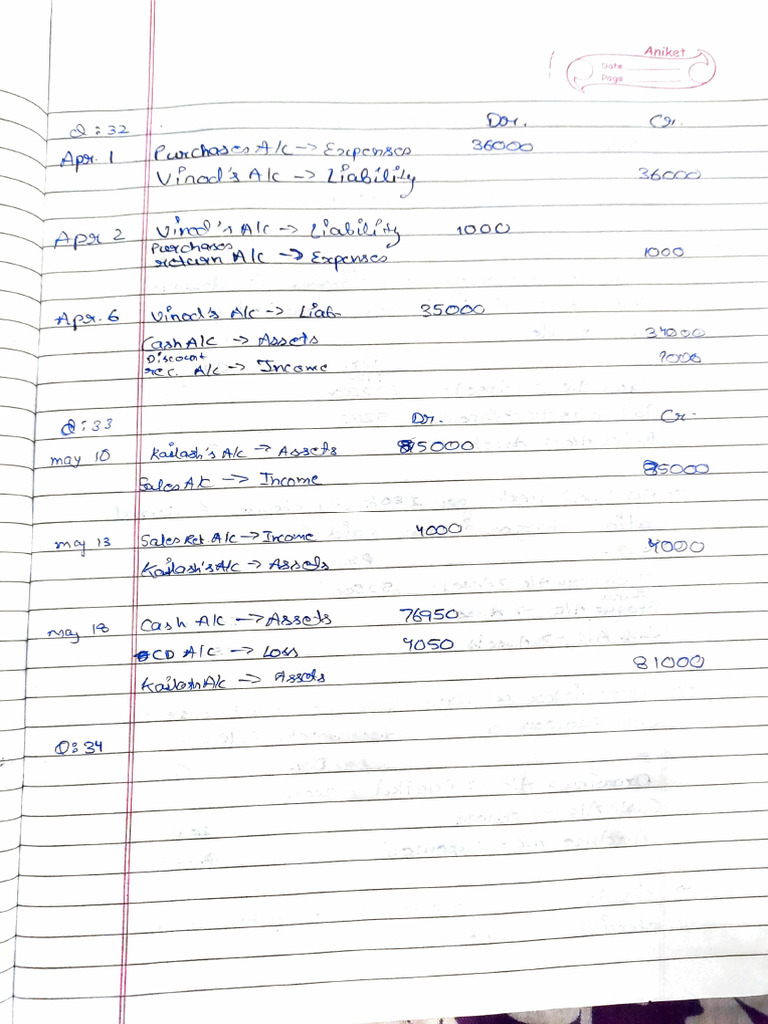 Aniket
Date
Page
Q:32 Dr. Cr.
Apr. 1 Purchases A/c → Expenses 36000
Vinod's A/c → Liability 36000
Apr 2 Vinod's A/c → Liability 1000
Purchases
return A/c → Expenses 1000
Apr. 6 Vinod's A/c → Liab 35000
Cash A/c → Assets 34000
Discount
rec. A/c → Income 1000
Q:33 Dr. Cr.
may 10 Kailash's A/c → Assets 85000
Sales A/c → Income 85000
may 13 Sales Ret A/c → Income 4000
Kailash's A/c → Assets 4000
may 18 Cash A/c → Assets 76950
CD A/c → Loss 4050
Kailash A/c → Assets 81000
Q:34